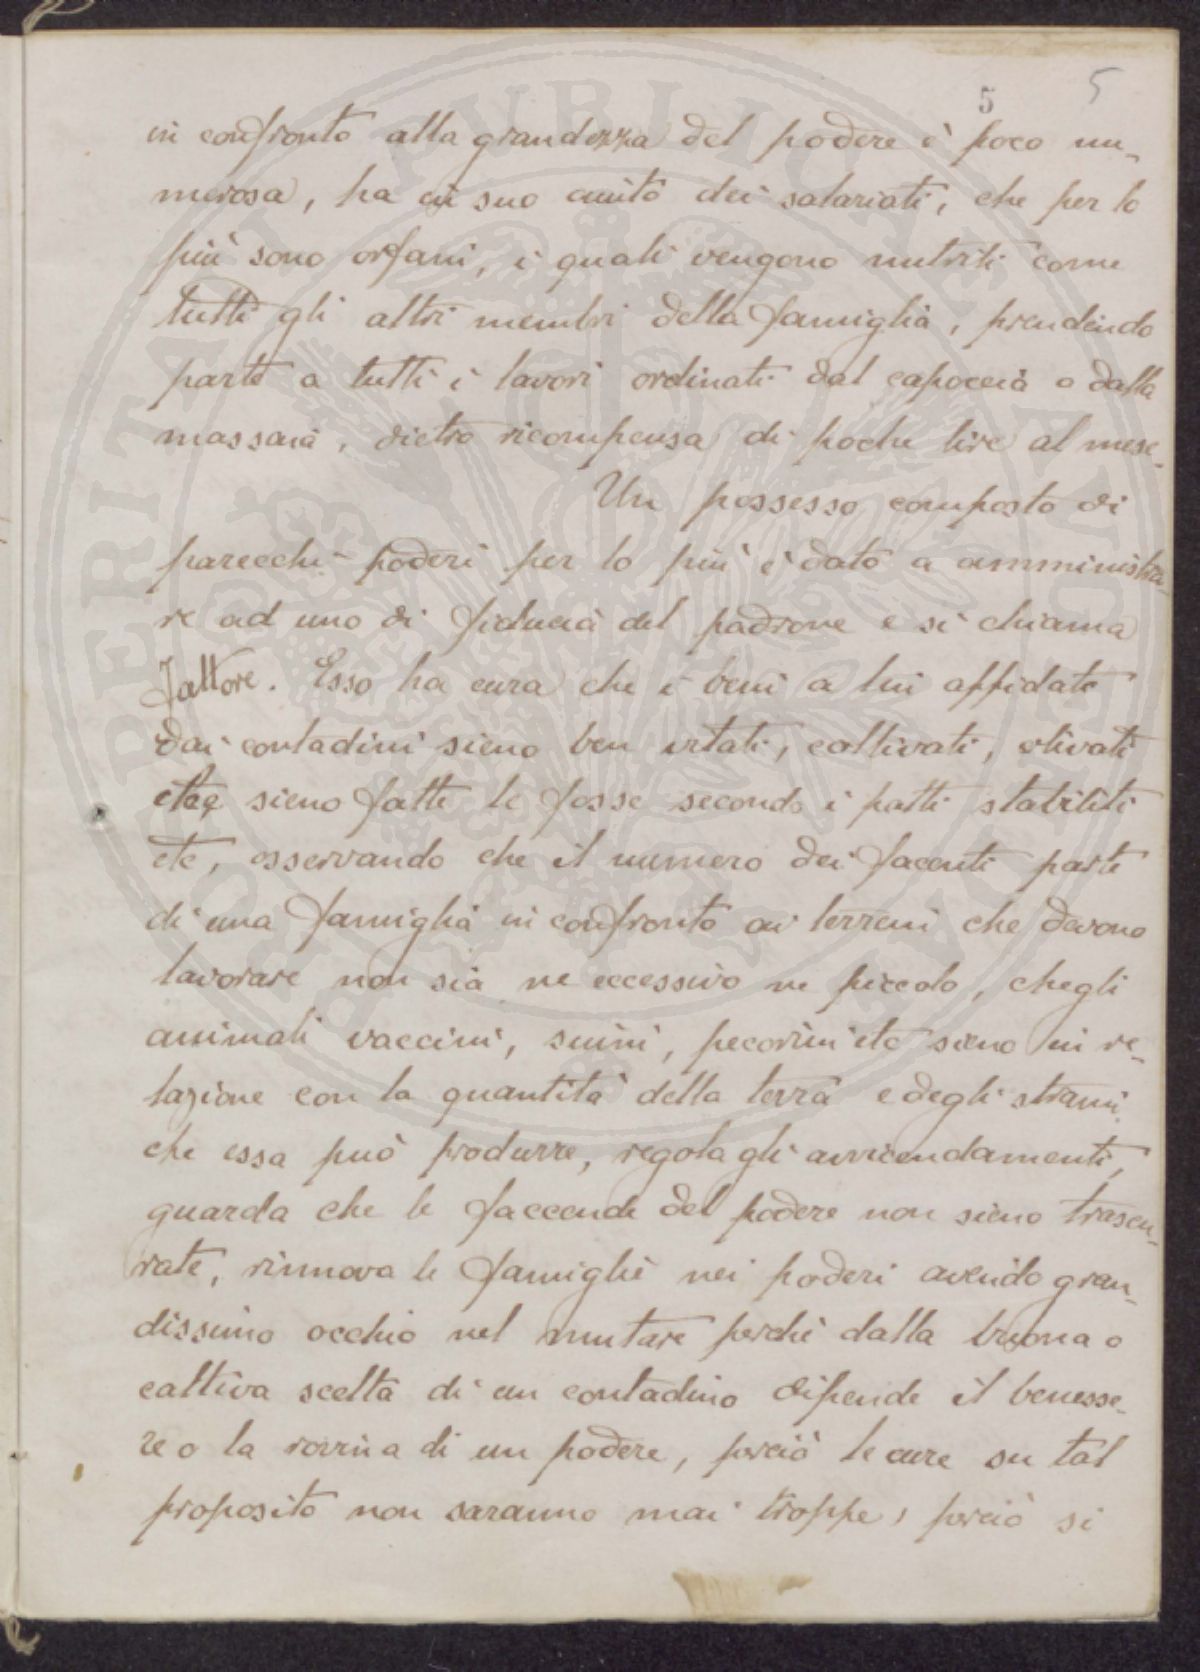 5 5
in confronto alla grandezza del podere è poco nu-
merosa, ha in suo aiuto dei salariati, che per lo
più sono orfani, i quali vengono nutriti come
tutti gli altri membri della famiglia, prendendo
parte a tutti i lavori ordinati dal capoccia o dalla
massaia, dietro ricompensa di poche lire al mese.
Un possesso composto di
parecchi poderi per lo più è dato a amministra-
re ad uno di fiducia del padrone e si chiama
Fattore. Esso ha cura che i beni a lui affidati
dai contadini sieno ben coltivati,
sieno fatte le fosse secondo i patti stabiliti
etc, osservando che il numero dei facenti parte
di una famiglia in confronto ai terreni che devono
lavorare non sia ne eccessivo ne piccolo, che gli
animali vaccini, suini, pecorini etc sieno in re-
lazione con la quantità della terra e degli strami
che essa può produrre, regola gli avvicendamenti,
guarda che le faccende del podere non sieno trascu-
rate, rinnova le famiglie nei poderi avendo gran-
dissimo occhio nel mutare perchè dalla buona o
cattiva scelta di un contadino dipende il benesse-
re o la rovina di un podere, perciò le cure su tal
proposito non saranno mai troppe, perciò si